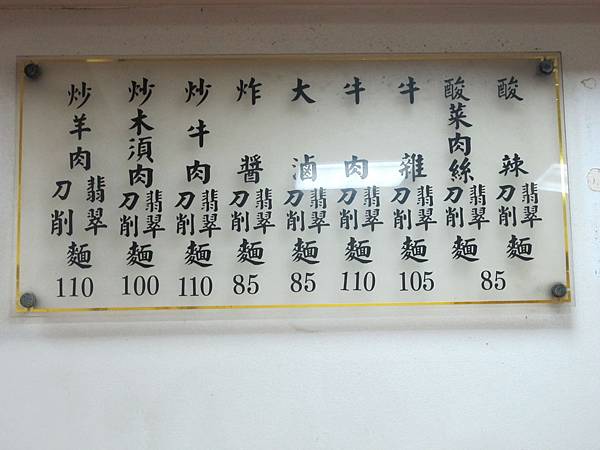 酸辣翡翠刀削麵
酸菜肉絲翡翠刀削麵
85
牛雜翡翠刀削麵 105
牛肉翡翠刀削麵 110
大滷翡翠刀削麵 85
炸醬翡翠刀削麵 85
炒牛肉翡翠刀削麵 110
炒木須肉翡翠刀削麵 100
炒羊肉翡翠刀削麵 110